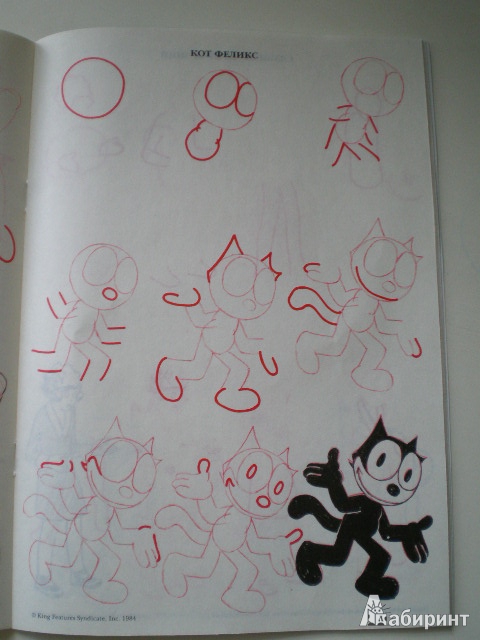 КОТ ФЕЛИКС
© King Features Syndicate, Inc. 1984
Лабиринт